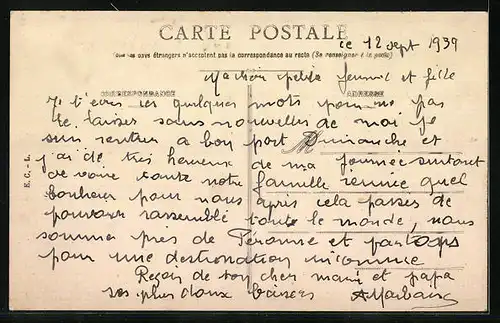 CARTE POSTALE
Tous les pays étrangers n'acceptent pas la correspondance au recto (Se renseigner à la poste)
ce 12 sept 1939
Ma chère petite femme et fille
CORRESPONDANCE ADRESSE
Je t'écris ces quelques mots pour ne pas
te laisser sans nouvelles de moi je
suis rentrer a bon port Dimanche et
j'ai été très heureux de ma journée surtout
de voire toute notre famille réunie quel
bonheur pour nous après cela passer de
pouvoir rassemblé toute le monde, nous
somme près de Péronne et partons
pour une destination inconnue
Reçois de ton cher mari et papa
ses plus doux baisers
E. C. - L.